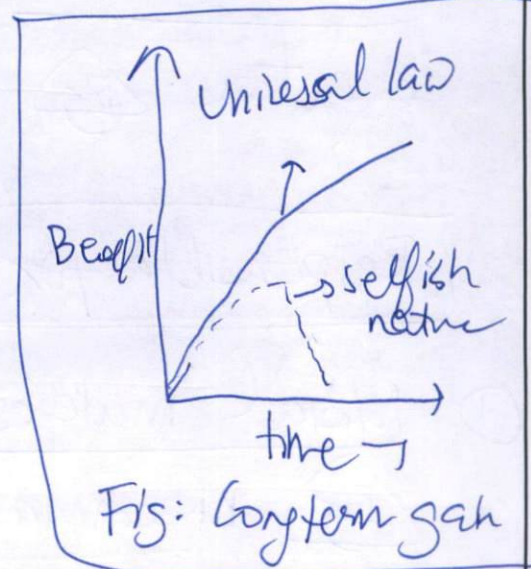 Universal law
Benefit
→ selfish
nature
time →
Fig: Longterm gain